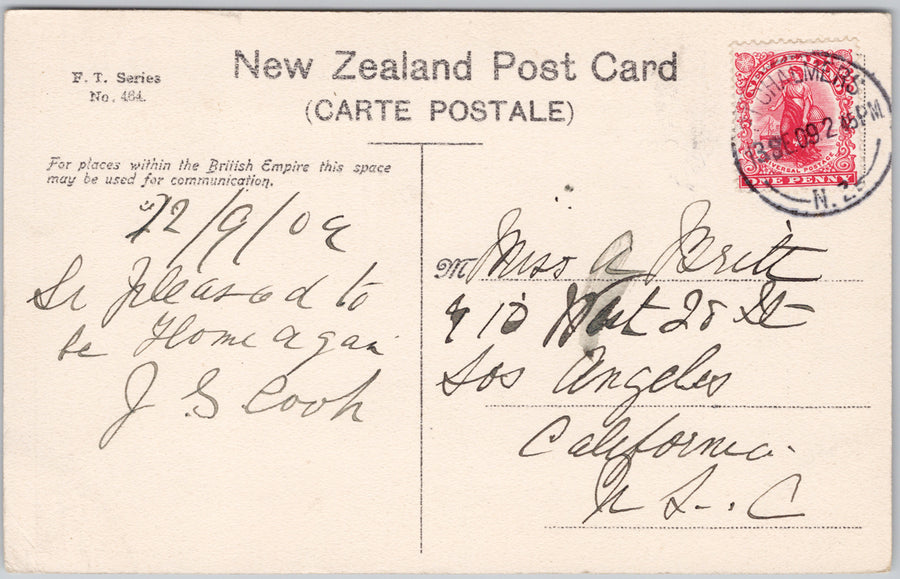 F. T. Series
No. 464.
New Zealand Post Card
(CARTE POSTALE)
For places within the British Empire this space
may be used for communication.
NEW ZEALAND
UNIVERSAL POSTAGE
ONE PENNY
CHALMERS
13 SE 09 2 45PM
N.Z.
12/9/09
So pleased to
be Home again
J S Cook
M Miss A Britt
910 West 28 St
Los Angeles
California